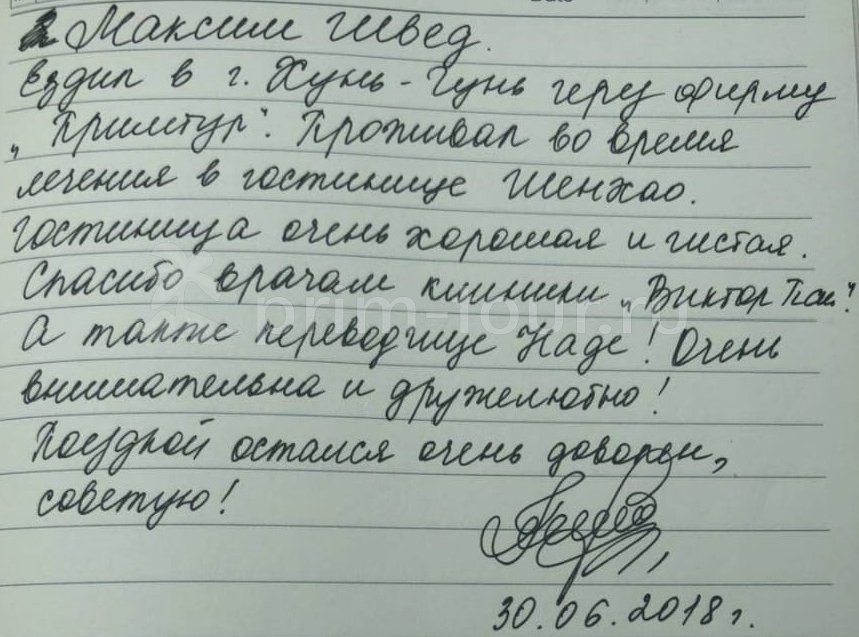 Максим Швед.
Ездил в г. Хунь-Чунь через фирму
„Примтур". Проживал во время
лечения в гостинице Шенхао.
Гостиница очень хорошая и чистая.
Спасибо врачам клиники „Виктор Пак".
А также переводчице Наде! Очень
внимательна и дружелюбно!
Поездкой остался очень доволен,
советую!
30.06.2018 г.
prim-tour.ru